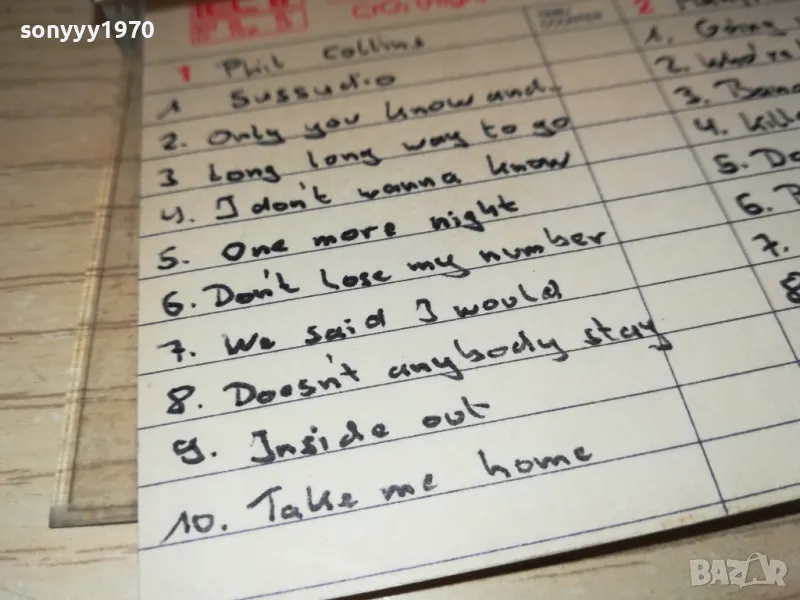 sonyyy1970
1 Phil Collins
1 Sussudio
2. Only you know and..
3 Long long way to go
4. I don't wanna know
5. One more night
6. Don't lose my number
7. We said I would
8. Doesn't anybody stay
9. Inside out
10. Take me home
2
1. Going
2.
3.
4.
5.
6.
7.
8
BAZAR